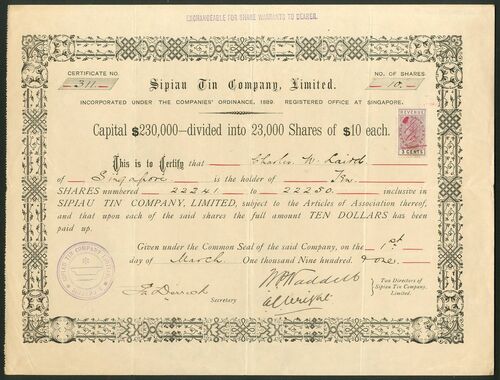 EXCHANGEABLE FOR SHARE WARRANTS TO BEARER.
CERTIFICATE NO.
311
Sipiau Tin Company, Limited.
NO. OF SHARES
10
INCORPORATED UNDER THE COMPANIES' ORDINANCE, 1889. REGISTERED OFFICE AT SINGAPORE.
Capital $230,000—divided into 23,000 Shares of $10 each.
REVENUE
3 CENTS
This is to Certify that Charles W. Laird
of Singapore is the holder of Ten
SHARES numbered 22241 to 22250 inclusive in
SIPIAU TIN COMPANY, LIMITED, subject to the Articles of Association thereof,
and that upon each of the said shares the full amount TEN DOLLARS has been
paid up.
Given under the Common Seal of the said Company, on the 1st
day of March One thousand Nine hundred & one.
SIPIAU TIN COMPANY LIMITED
Secretary
Two Directors of
Sipiau Tin Company,
Limited.